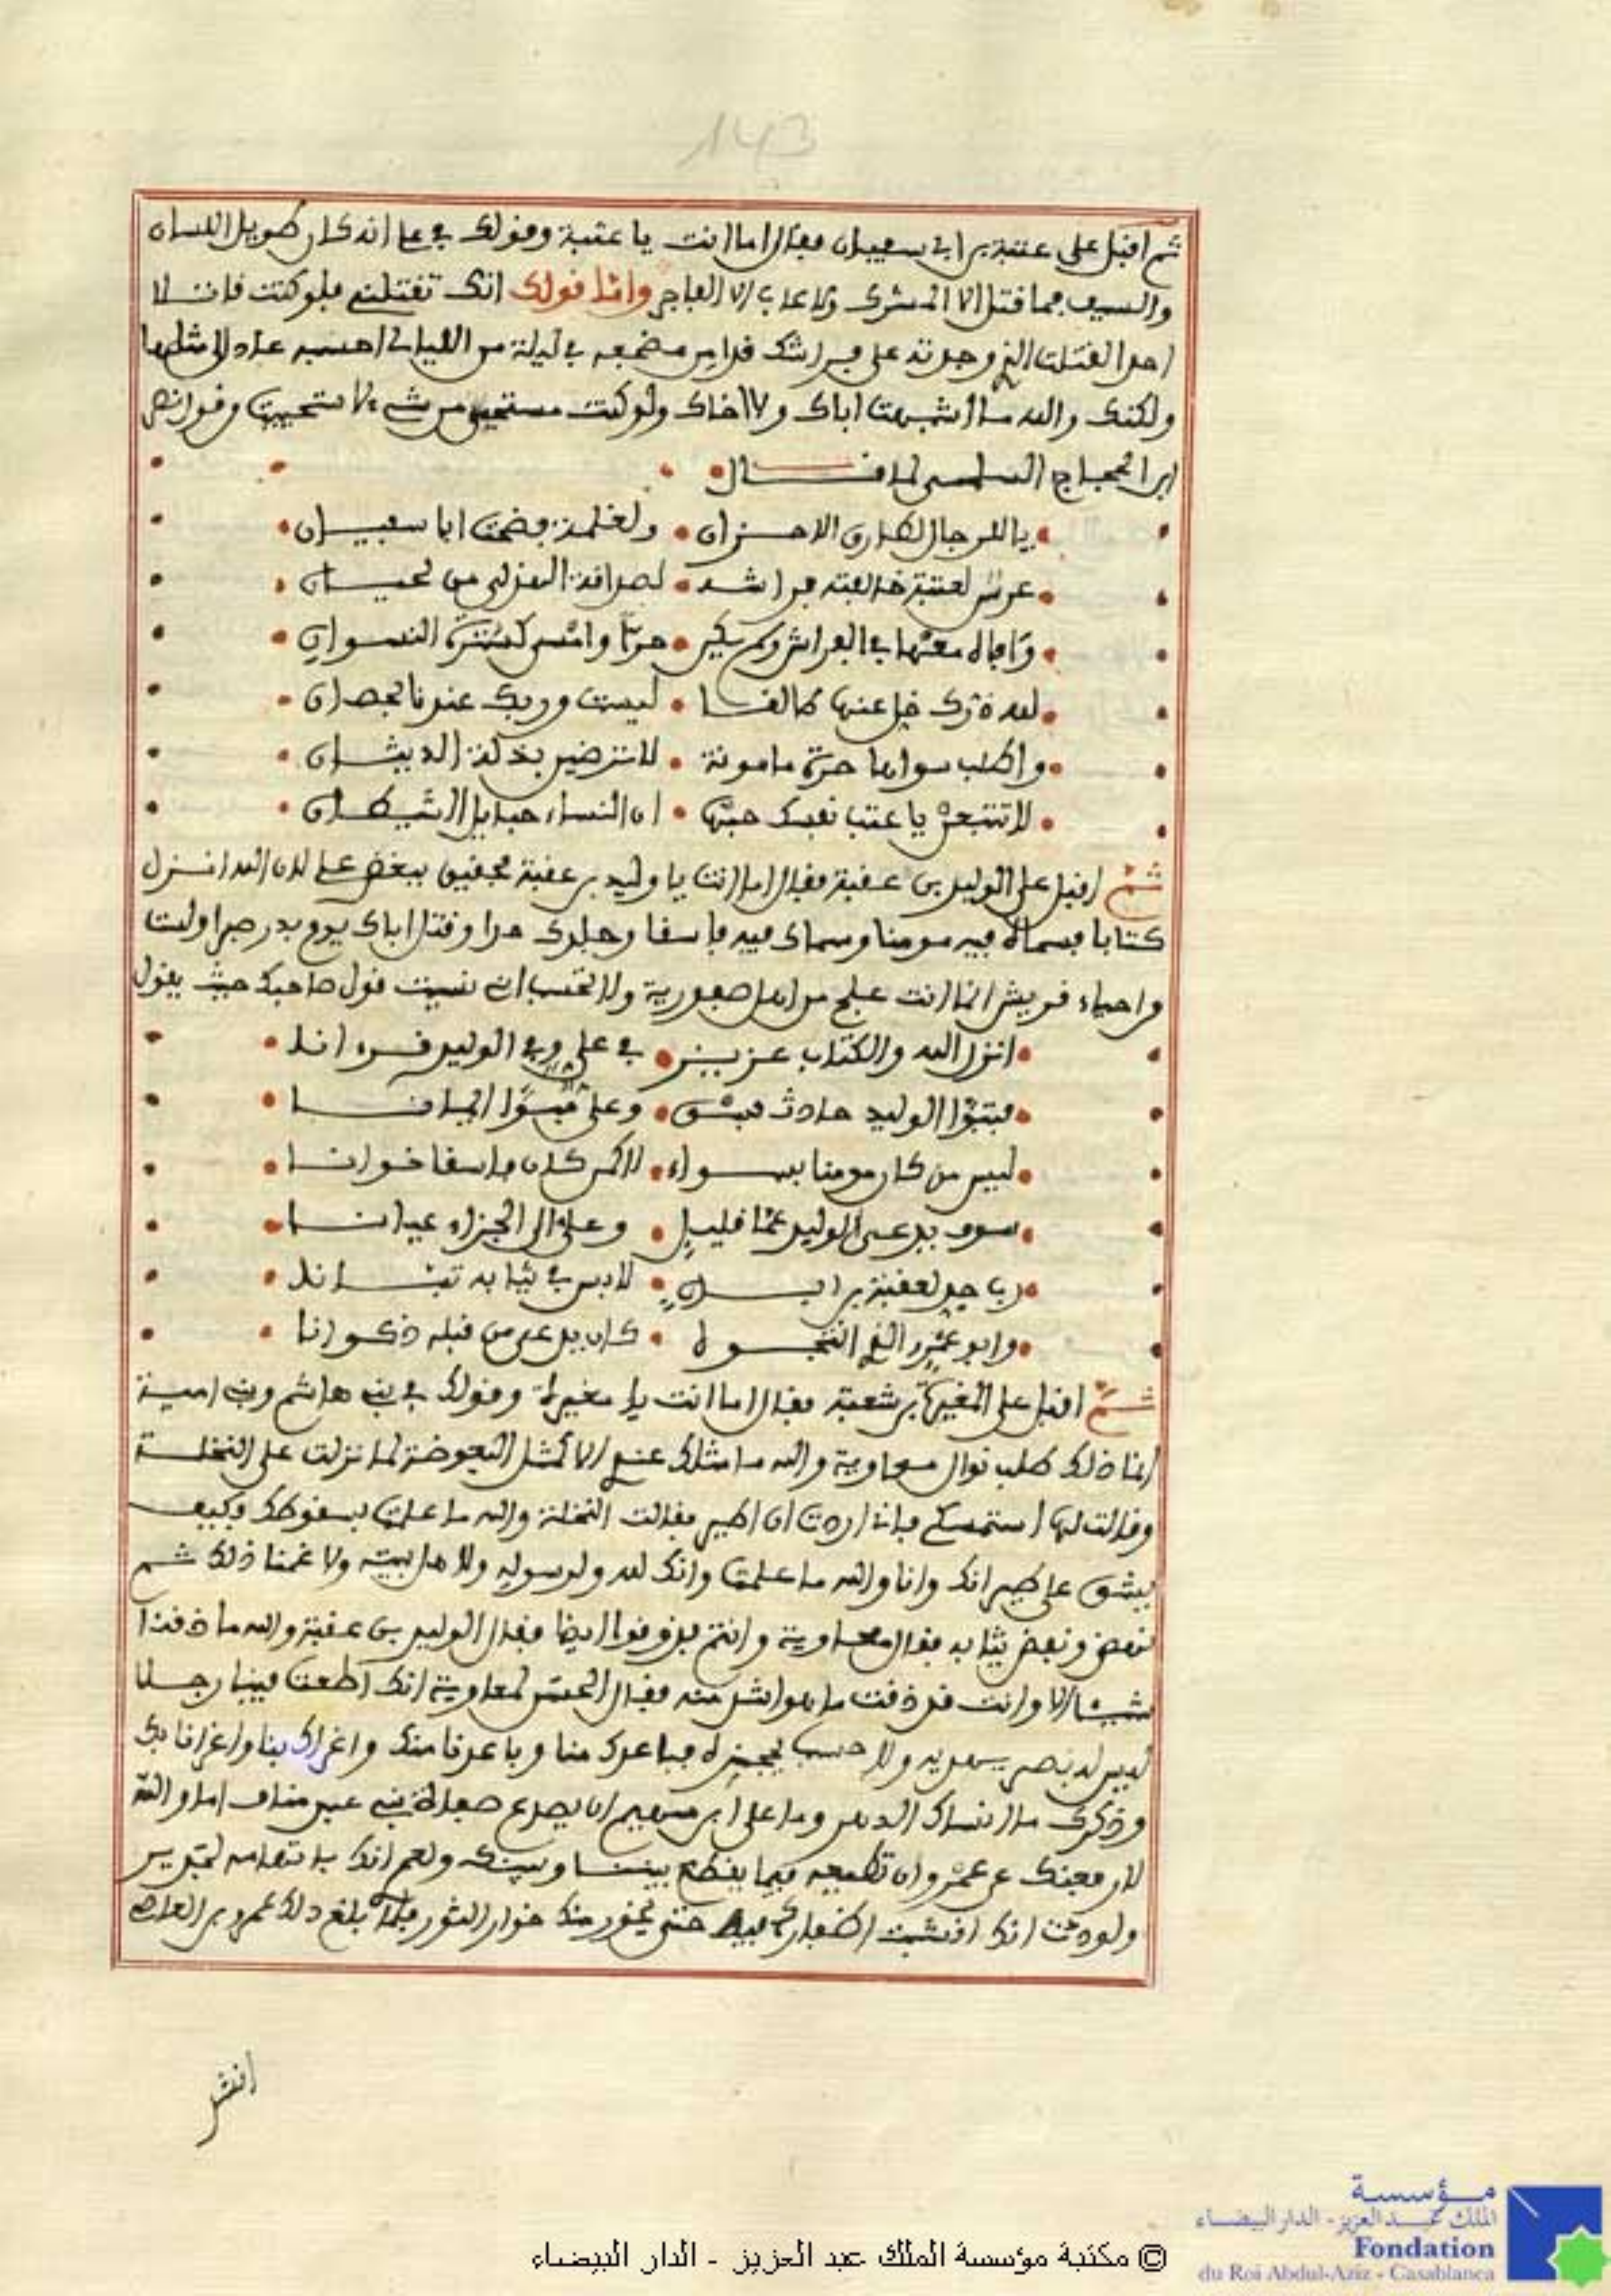 143
ثم اقبل على عتبة بن ابي سفيان فقال اما انت يا عتبة وقولك في علي انه كان طويل اللسان
والسيف فما قتل الا المشرك ولا عاب الا الفاجر واما قولك انك تقتلني فلو كنت قاتلا
احدا لقتلت الذي وجدته على فراشك قد امن مضجعه في ليلة من الليالي احسبه عاد لامثلها
ولكنك والله ما اشبهت اباك ولا اخاك ولو كنت مستحيى من شيء لاستحييت وقول نصر
ابن الحجاج السلمي لما قال
يا للرجال لطارق الاحزان ولغلمة فضحت ابا سفيان
عرس لعتبة خالفته فراشه لصداقة الهزلي من لحيان
وافاه معها في الفراش ولم يكن حرا وامسى كسترة النسوان
لله درك خل عنها كالفا ليست وربك عندنا بحصان
واطلب سواها حرة مامونة لا ترضين بخلة الديثان
لا تتبعن يا عتب نفسك حبها ان النساء حبايل الشيطان
ثم اقبل على الوليد بن عقبة فقال اما انت يا وليد بن عقبة فحقيق ببغض علي لان الله انزل
كتابا فسماه فيه مومنا وسماك فيه فاسقا وجلدك حدا وقتل اباك يوم بدر صبرا ولست
من احياء قريش انما انت علج من اهل صفورية ولا تحسب اني نسيت قول صاحبك حيث يقول
انزل الله والكتاب عزيز في علي وفي الوليد قرءانا
فتبوا الوليد حادث فسق وعلي مبوا ايمانا
ليس من كان مومنا بسواء لا كمن كان فاسقا خوانا
سوف يدعى الوليد عما قليل وعلي الى الجزاء عيانا
رب جد لعقبة بن ابان لابس في ثيابه تبانا
وابو عمرو الذي انتجوه كان يدعى من قبله ذكوانا
ثم اقبل على المغيرة بن شعبة فقال اما انت يا مغيرة وقولك في بني هاشم وبني امية
انما ذلك طلب نوال معاوية والله ما مثلك عندي الا كمثل البعوضة لما نزلت على النخلة
وقالت لها استمسكي فاني اردت ان اطير فقالت النخلة والله ما علمت بسقوطك وكيف
يشق علي طيرانك وانا والله ما علمت وانك لله ولرسوله ولاهل بيته ولا غمنا ذلك ثم
نهض ونفض ثيابه فقال معاوية وانتم فذوقوا ايضا فقال الوليد بن عقبة والله ما ذقنا
شيئا الا وانت قد ذقت ما هو اشد منه فقال الحسن لمعاوية انك اطعت فينا رجلا
ليس له نصر يسعد به ولا حسب يحجزه فباعدك منا وباعدنا منك واغراك بنا واغرانا بك
وذكرك ما انساك الدهر وما على ابن سهم ان يصدع صفاة بني عبد مناف اما والله
لارفعنك عن عمرو ان تطيعه فيما يقطع بيننا وبينك ولعمرانك
ولوددت انك انشبت اظفارك فيه حتى يخور منك خوار الثور فلما بلغ ذلك عمرو بن العاص
انش
مؤسسة
الملك عبد العزيز - الدار البيضاء
Fondation
du Roi Abdul-Aziz - Casablanca
© مكتبة مؤسسة الملك عبد العزيز - الدار البيضاء